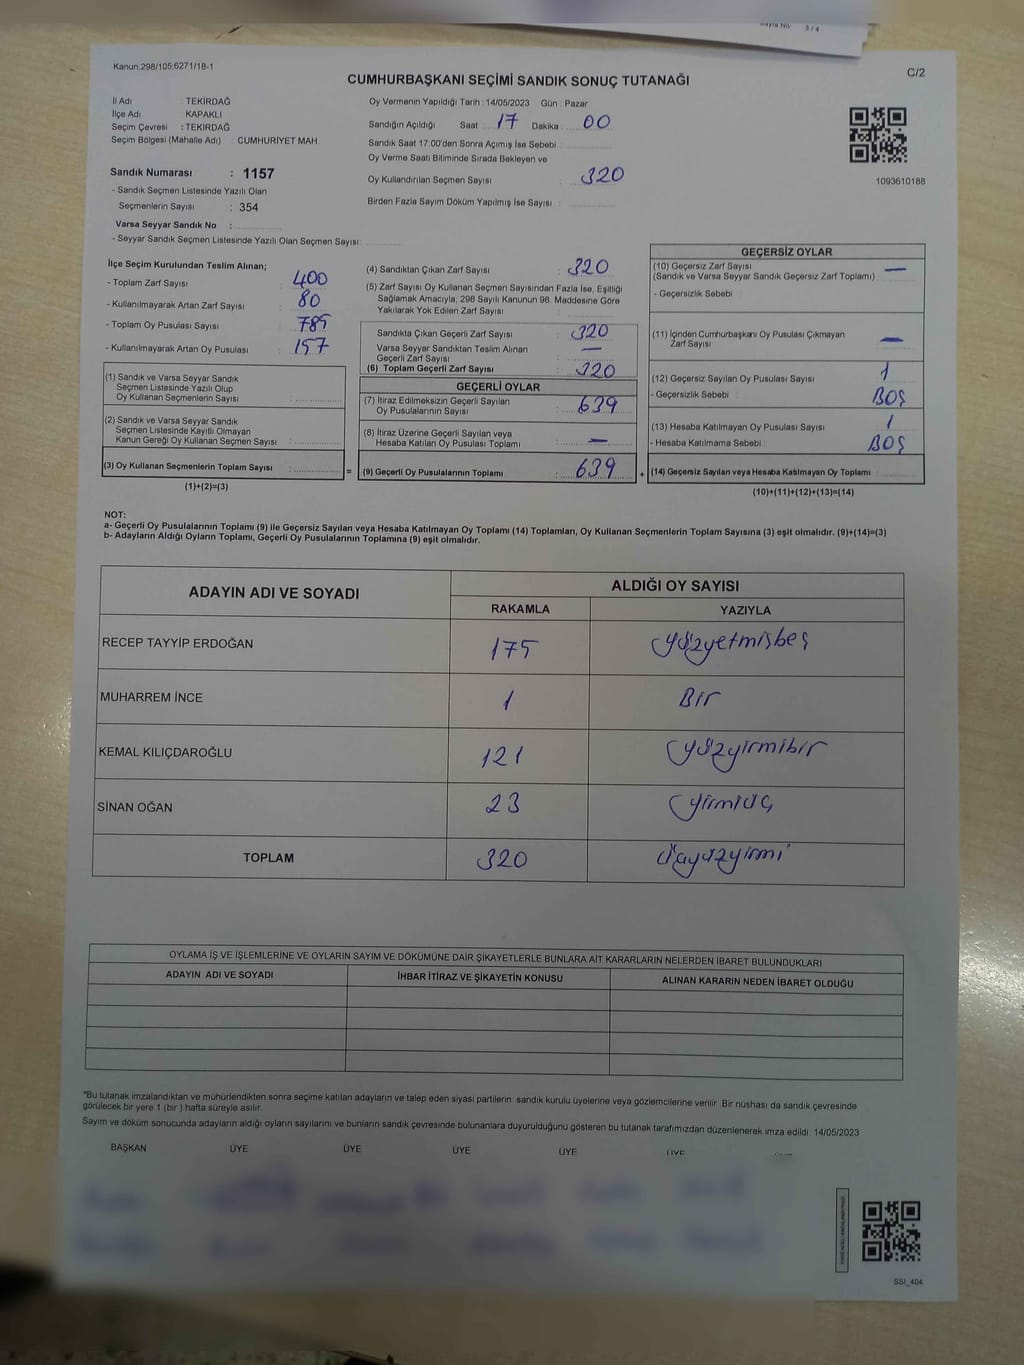 Sayfa No 3/4
Kanun:298/105,6271/18-1
C/2
CUMHURBAŞKANI SEÇİMİ SANDIK SONUÇ TUTANAĞI
İl Adı TEKİRDAĞ
İlçe Adı KAPAKLI
Seçim Çevresi : TEKİRDAĞ
Seçim Bölgesi (Mahalle Adı) : CUMHURİYET MAH.
Sandık Numarası : 1157
- Sandık Seçmen Listesinde Yazılı Olan
Seçmenlerin Sayısı : 354
Varsa Seyyar Sandık No :
- Seyyar Sandık Seçmen Listesinde Yazılı Olan Seçmen Sayısı:
Oy Vermenin Yapıldığı Tarih : 14/05/2023 Gün : Pazar
Sandığın Açıldığı Saat : 17 Dakika : 00
Sandık Saat 17.00'den Sonra Açımış İse Sebebi :
Oy Verme Saati Bitiminde Sırada Bekleyen ve
Oy Kullandırılan Seçmen Sayısı : 320
Birden Fazla Sayım Döküm Yapılmış İse Sayısı :
1093610188
İlçe Seçim Kurulundan Teslim Alınan;
- Toplam Zarf Sayısı : 400
- Kullanılmayarak Artan Zarf Sayısı : 80
- Toplam Oy Pusulası Sayısı : 785
- Kullanılmayarak Artan Oy Pusulası : 157
(1) Sandık ve Varsa Seyyar Sandık
Seçmen Listesinde Yazılı Olup
Oy Kullanan Seçmenlerin Sayısı :
(2) Sandık ve Varsa Seyyar Sandık
Seçmen Listesinde Kayıtlı Olmayan
Kanun Gereği Oy Kullanan Seçmen Sayısı :
(3) Oy Kullanan Seçmenlerin Toplam Sayısı :
(1)+(2)=(3)
=
(4) Sandıktan Çıkan Zarf Sayısı : 320
(5) Zarf Sayısı Oy Kullanan Seçmen Sayısından Fazla İse, Eşitliği
Sağlamak Amacıyla; 298 Sayılı Kanunun 98. Maddesine Göre
Yakılarak Yok Edilen Zarf Sayısı :
Sandıkta Çıkan Geçerli Zarf Sayısı : 320
Varsa Seyyar Sandıktan Teslim Alınan
Geçerli Zarf Sayısı : —
(6) Toplam Geçerli Zarf Sayısı : 320
GEÇERLİ OYLAR
(7) İtiraz Edilmeksizin Geçerli Sayılan
Oy Pusulalarının Sayısı : 639
(8) İtiraz Üzerine Geçerli Sayılan veya
Hesaba Katılan Oy Pusulası Toplamı : —
(9) Geçerli Oy Pusulalarının Toplamı : 639
+
GEÇERSİZ OYLAR
(10) Geçersiz Zarf Sayısı
(Sandık ve Varsa Seyyar Sandık Geçersiz Zarf Toplamı) : —
- Geçersizlik Sebebi
(11) İçinden Cumhurbaşkanı Oy Pusulası Çıkmayan
Zarf Sayısı : —
(12) Geçersiz Sayılan Oy Pusulası Sayısı : 1
- Geçersizlik Sebebi : BOŞ
(13) Hesaba Katılmayan Oy Pusulası Sayısı : 1
- Hesaba Katılmama Sebebi : BOŞ
(14) Geçersiz Sayılan veya Hesaba Katılmayan Oy Toplamı :
(10)+(11)+(12)+(13)=(14)
NOT:
a- Geçerli Oy Pusulalarının Toplamı (9) ile Geçersiz Sayılan veya Hesaba Katılmayan Oy Toplamı (14) Toplamları, Oy Kullanan Seçmenlerin Toplam Sayısına (3) eşit olmalıdır. (9)+(14)=(3)
b- Adayların Aldığı Oyların Toplamı, Geçerli Oy Pusulalarının Toplamına (9) eşit olmalıdır.
ADAYIN ADI VE SOYADI ALDIĞI OY SAYISI
RAKAMLA YAZIYLA
RECEP TAYYİP ERDOĞAN 175 yüzyetmişbeş
MUHARREM İNCE 1 Bir
KEMAL KILIÇDAROĞLU 121 yüzyirmibir
SİNAN OĞAN 23 yirmiüç
TOPLAM 320 üçyüzyirmi
OYLAMA İŞ VE İŞLEMLERİNE VE OYLARIN SAYIM VE DÖKÜMÜNE DAİR ŞİKAYETLERLE BUNLARA AİT KARARLARIN NELERDEN İBARET BULUNDUKLARI
ADAYIN ADI VE SOYADI İHBAR İTİRAZ VE ŞİKAYETİN KONUSU ALINAN KARARIN NEDEN İBARET OLDUĞU
*Bu tutanak imzalandıktan ve mühürlendikten sonra seçime katılan adayların ve talep eden siyasi partilerin sandık kurulu üyelerine veya gözlemcilerine verilir. Bir nüshası da sandık çevresinde
görülecek bir yere 1 (bir ) hafta süreyle asılır.
Sayım ve döküm sonucunda adayların aldığı oyların sayılarını ve bunların sandık çevresinde bulunanlara duyurulduğunu gösteren bu tutanak tarafımızdan düzenlenerek imza edildi. 14/05/2023
BAŞKAN ÜYE ÜYE ÜYE ÜYE ÜYE ÜYE
SSI_404